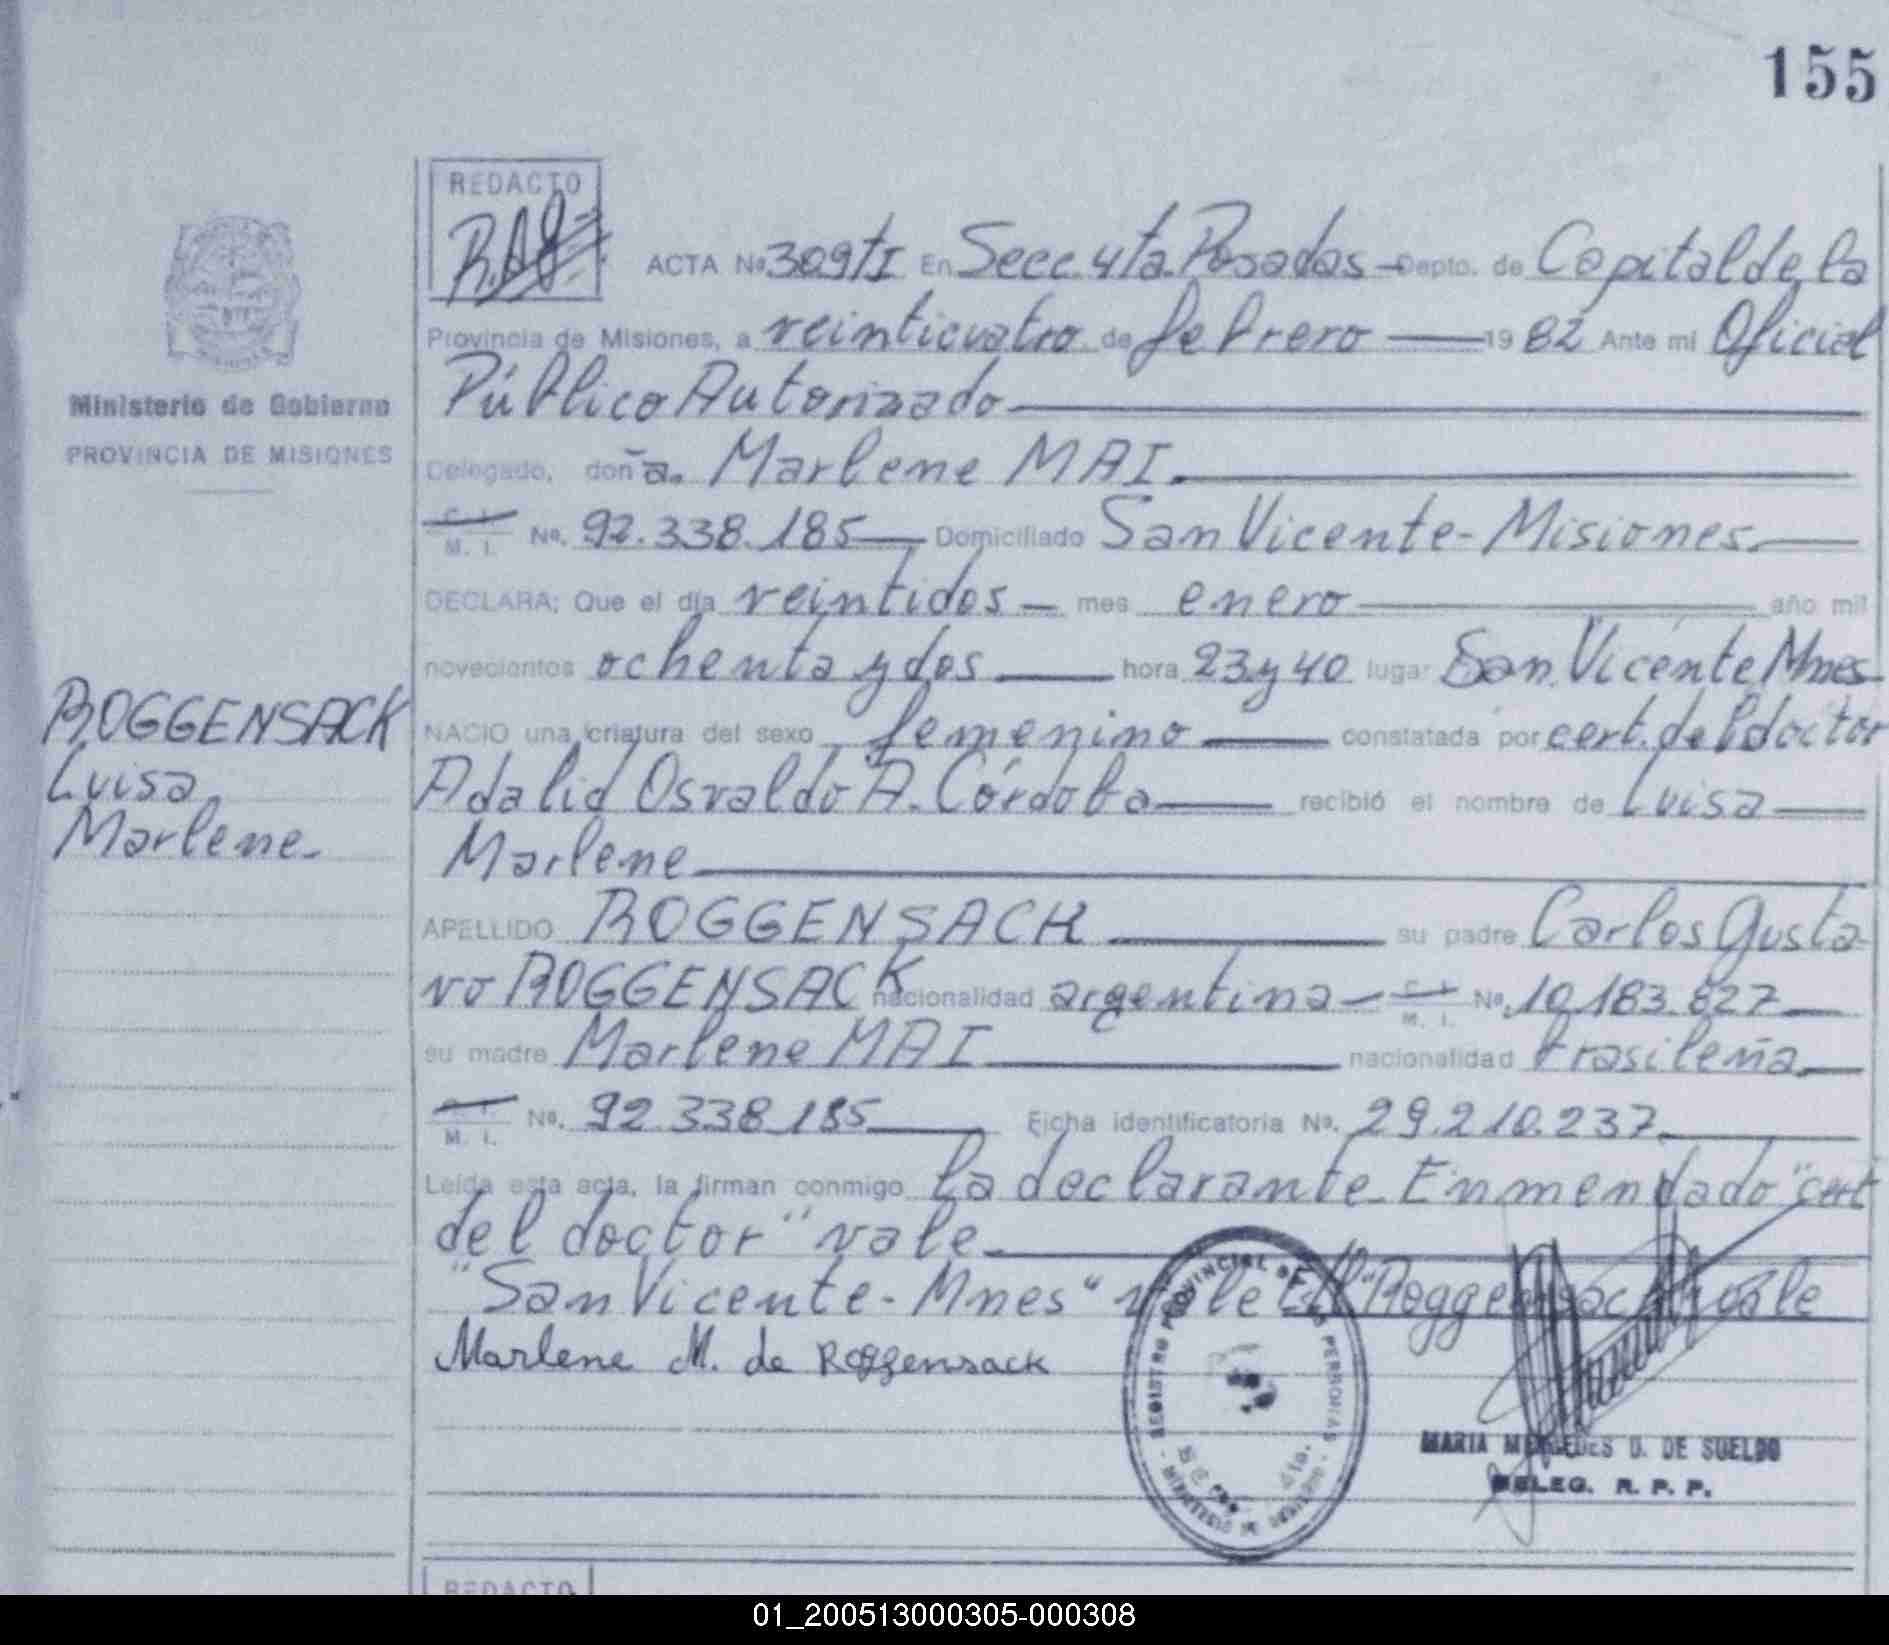 155
REDACTO
ACTA Nº 309 t I En Secc. 4ta. Posadas - Depto. de Capital de la
Provincia de Misiones, a veinticuatro de febrero 1982 Ante mi Oficial
Público Autorizado
Ministerio de Gobierno
PROVINCIA DE MISIONES
Delegado, doña. Marlene MAI.
C. I. M. I. Nº. 92.338.185 Domiciliado San Vicente - Misiones.
DECLARA; Que el día veintidos - mes enero año mil
novecientos ochenta y dos hora 23 y 40 lugar San Vicente Mnes
ROGGENSACK
Luisa
Marlene.
NACIO una criatura del sexo femenino constatada por cert. del doctor
Adalid Osvaldo A. Córdoba recibió el nombre de Luisa
Marlene
APELLIDO ROGGENSACK su padre Carlos Gusta-
vo ROGGENSACK nacionalidad argentina - C. I. M. I. Nº. 10.183.827
su madre Marlene MAI nacionalidad brasileña.
M. I. Nº. 92.338.185 Ficha identificatoria Nº. 29.210.237
Leída esta acta, la firman conmigo la declarante. Enmendado "cert
del doctor" vale.
"San Vicente - Mnes" vale "Roggensack" vale
Marlene M. de Roggensack
REGISTRO PROVINCIAL DE LAS PERSONAS
MINISTERIO DE GOBIERNO
MARIA MERCEDES D. DE SUELDO
DELEG. R. P. P.
REDACTO
01_200513000305-000308